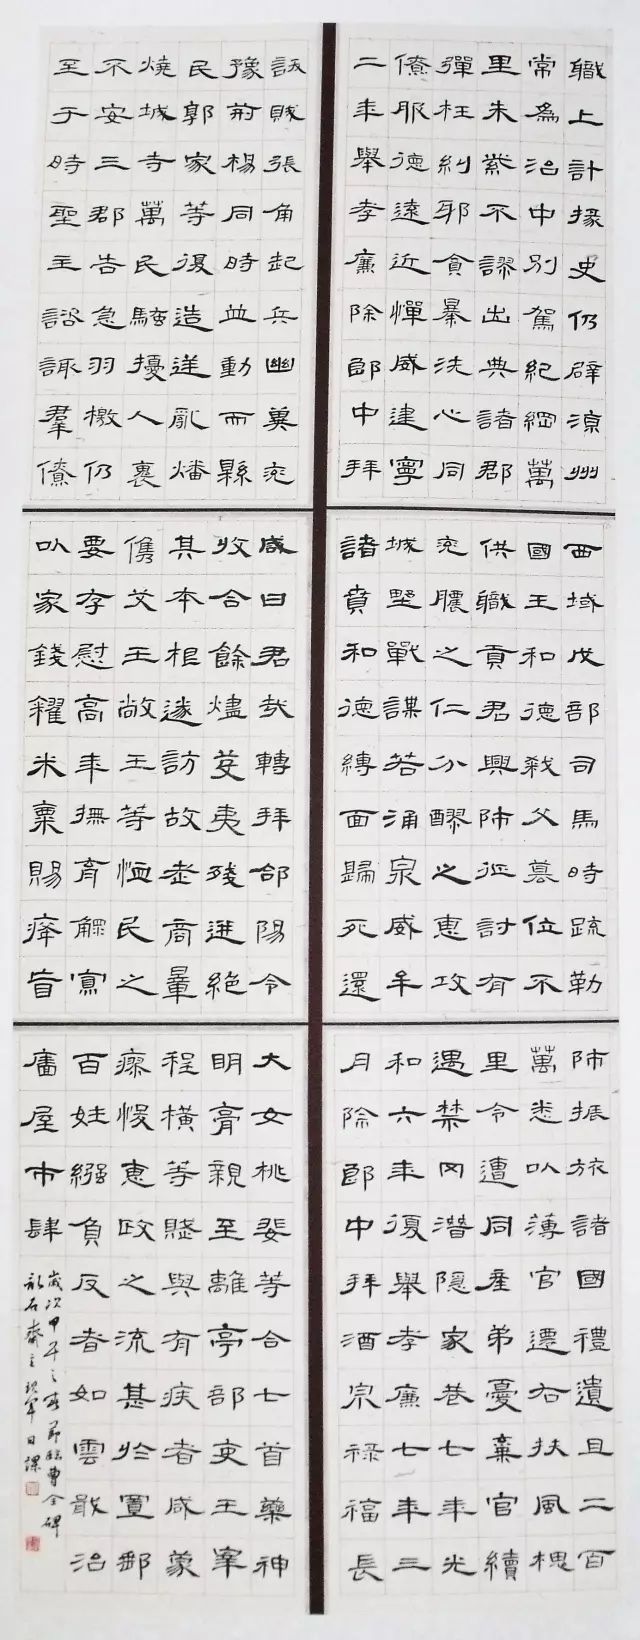 職上計掾史仍辟涼州
常為治中別駕紀綱萬
里朱紫不謬出典諸郡
彈枉糾邪貪暴洗心同
僚服德遠近憚威建寧
二年舉孝廉除郎中拜
西域戊部司馬時疏勒
國王和德弒父篡位不
供職貢君興師征討有
兗膿之仁分醪之惠攻
城野戰謀若涌泉威牟
諸賁和德縛面歸死還
師振旅諸國禮遺且二百
萬悉以薄官遷右扶風槐
里令遭同產弟憂棄官續
遇禁网潛隱家巷七年光
和六年復舉孝廉七年三
月除郎中拜酒泉祿福長
訞賊張角起兵幽冀兗
豫荊楊同時並動而縣
民郭家等復造逆亂燔
燒城寺萬民騷擾人裹
不安三郡告急羽檄仍
至于時聖主諮諏群僚
咸曰君哉轉拜郃陽令
收合餘燼芟夷殘迸絕
其本根遂訪故老商暈
儁艾王敞王等恤民之
要存慰高年撫育鰥寡
以家錢糴米粟賜癃盲
大女桃婓等合七首藥神
明膏親至離亭部吏王宰
程橫等賦與有疾者咸蒙
瘳悛惠政之流甚於置郵
百姓繦負反者如雲戢治
廧屋市肆
歲次甲午之春節臨曹全碑
石齋主現軍日課